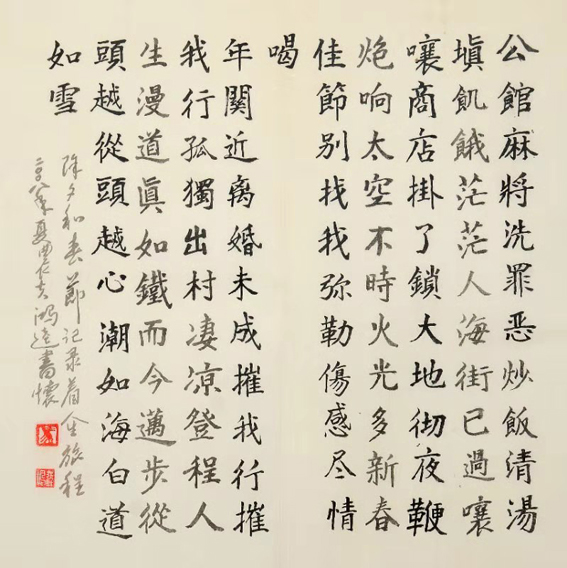 公館麻將洗罪恶炒飯清湯
塡飢餓茫茫人海街已過嚷
嚷商店掛了鎖大地彻夜鞭
炮响太空不時火光多新春
佳節别找我弥勒傷感尽情
喝
年關近离婚未成摧我行摧
我行孤獨出村凄凉登程人
生漫道眞如鐵而今邁步從
頭越從頭越心潮如海白道
如雪
除夕和春節记录着人生旅程
夏書懷